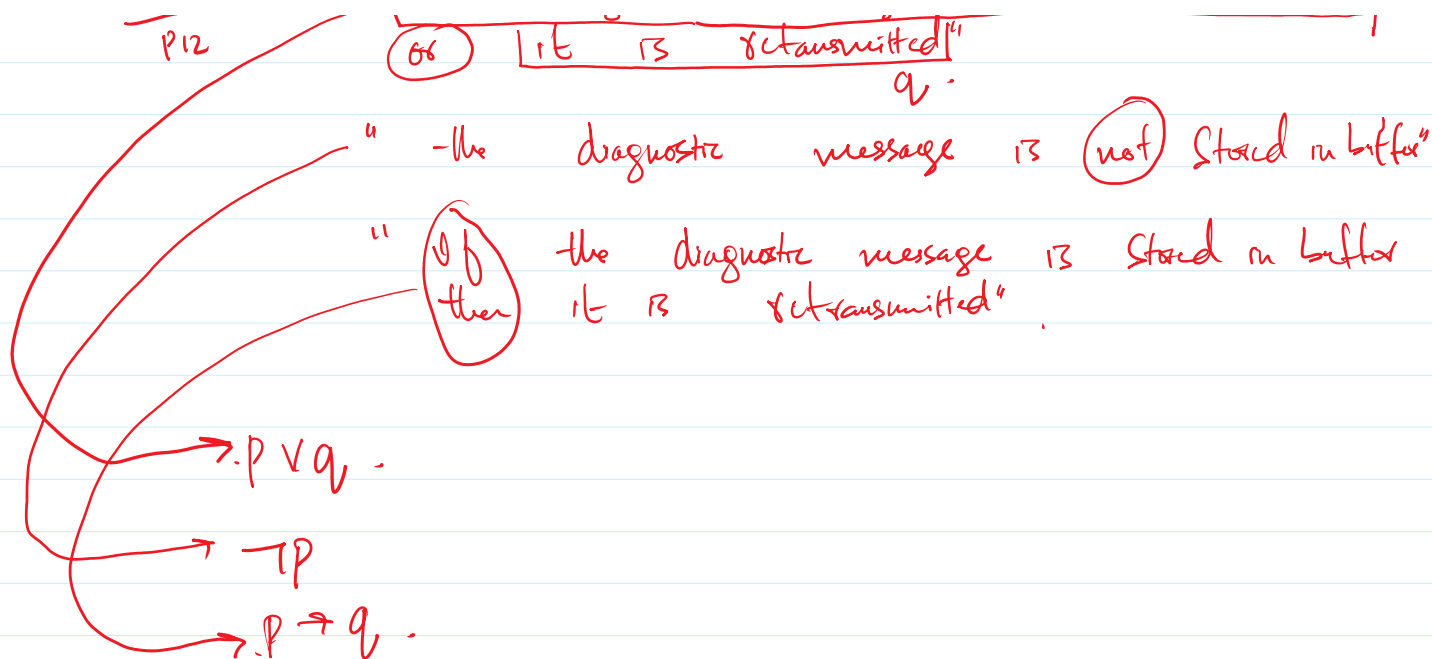 P12 or it is retansmitted"
q.
" the diagnostic message is not Stored in buffer"
" If the diagnostic message is Stored in buffer
then it is retransmitted".
P ∨ q.
¬P
P → q.